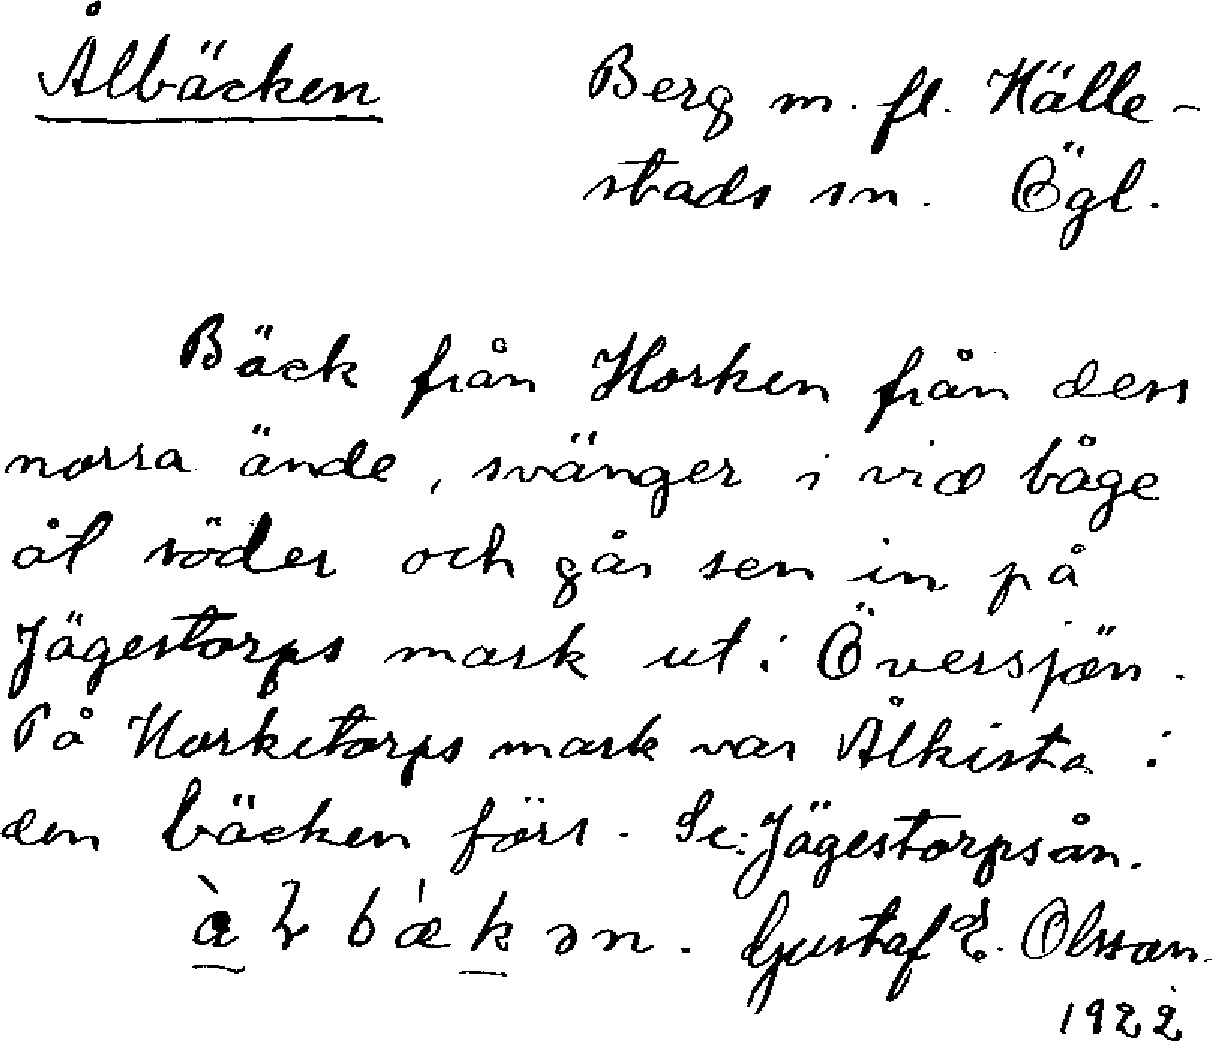 Ålbäcken
Berg m. fl. Hälle-
stads sn. Ögl.
Bäck från Horken från den
norra ände, svänger i vid båge
åt söder och går sen in på
Jägestorps mark ut i Översjön.
På Horketorps mark var Ålkista i
den bäcken förr. Se: Jägestorpsån.
Gustaf E. Olsson
1922